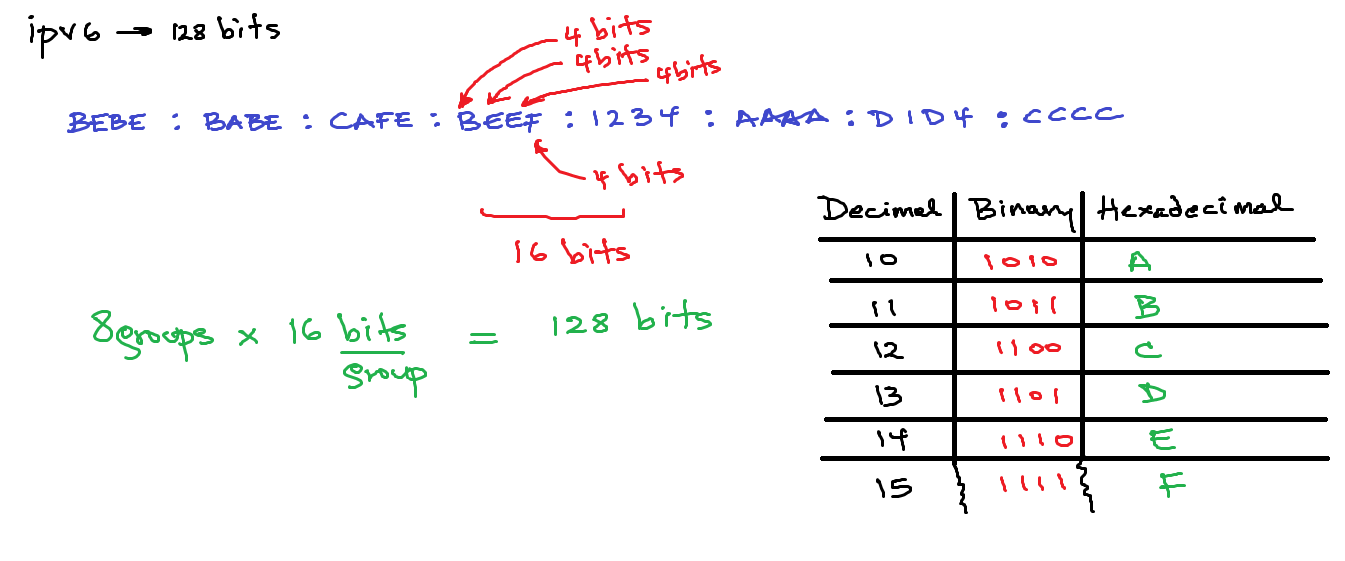 ipv6 → 128 bits
4 bits
4bits
4bits
BEBE : BABE : CAFE : BEEF : 1234 : AAAA : D1D4 : CCCC
4 bits
16 bits
8groups × 16 bits/group = 128 bits
Decimal | Binary | Hexadecimal
10 | 1010 | A
11 | 1011 | B
12 | 1100 | C
13 | 1101 | D
14 | 1110 | E
15 | 1111 | F